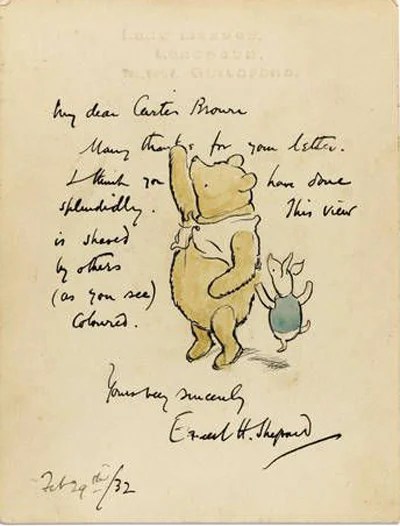 GUILDFORD.
My dear Carter Brown
Many thanks for your letter.
I think you have done
splendidly. This view
is shared
by others
(as you see)
Coloured.
Yours very sincerely
Ernest H. Shepard
Feb 29th/32